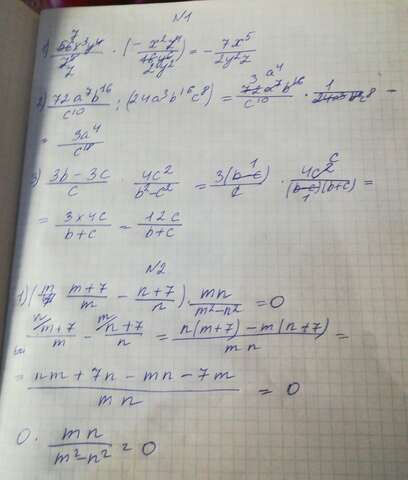 №1
1) 56x³y⁴/z⁵ · (-x²y⁴/16y⁶) = -7x⁵/2y²z
2) 72a⁷b¹⁶/c¹⁰ : (24a³b¹⁶c⁸) = 72a⁷b¹⁶/c¹⁰ · 1/24a³b¹⁶c⁸ =
= 3a⁴/c¹⁸
3) 3b-3c/c · 4c²/b²-c² = 3(b-c)/c · 4c²/(b-c)(b+c) =
= 3×4c/b+c = 12c/b+c
№2
1) (m+7/m - n+7/n) · mn/m²-n² = 0
m+7/m - n+7/n = n(m+7)-m(n+7)/mn =
= nm+7n-mn-7m/mn = 0
0 · mn/m²-n² = 0